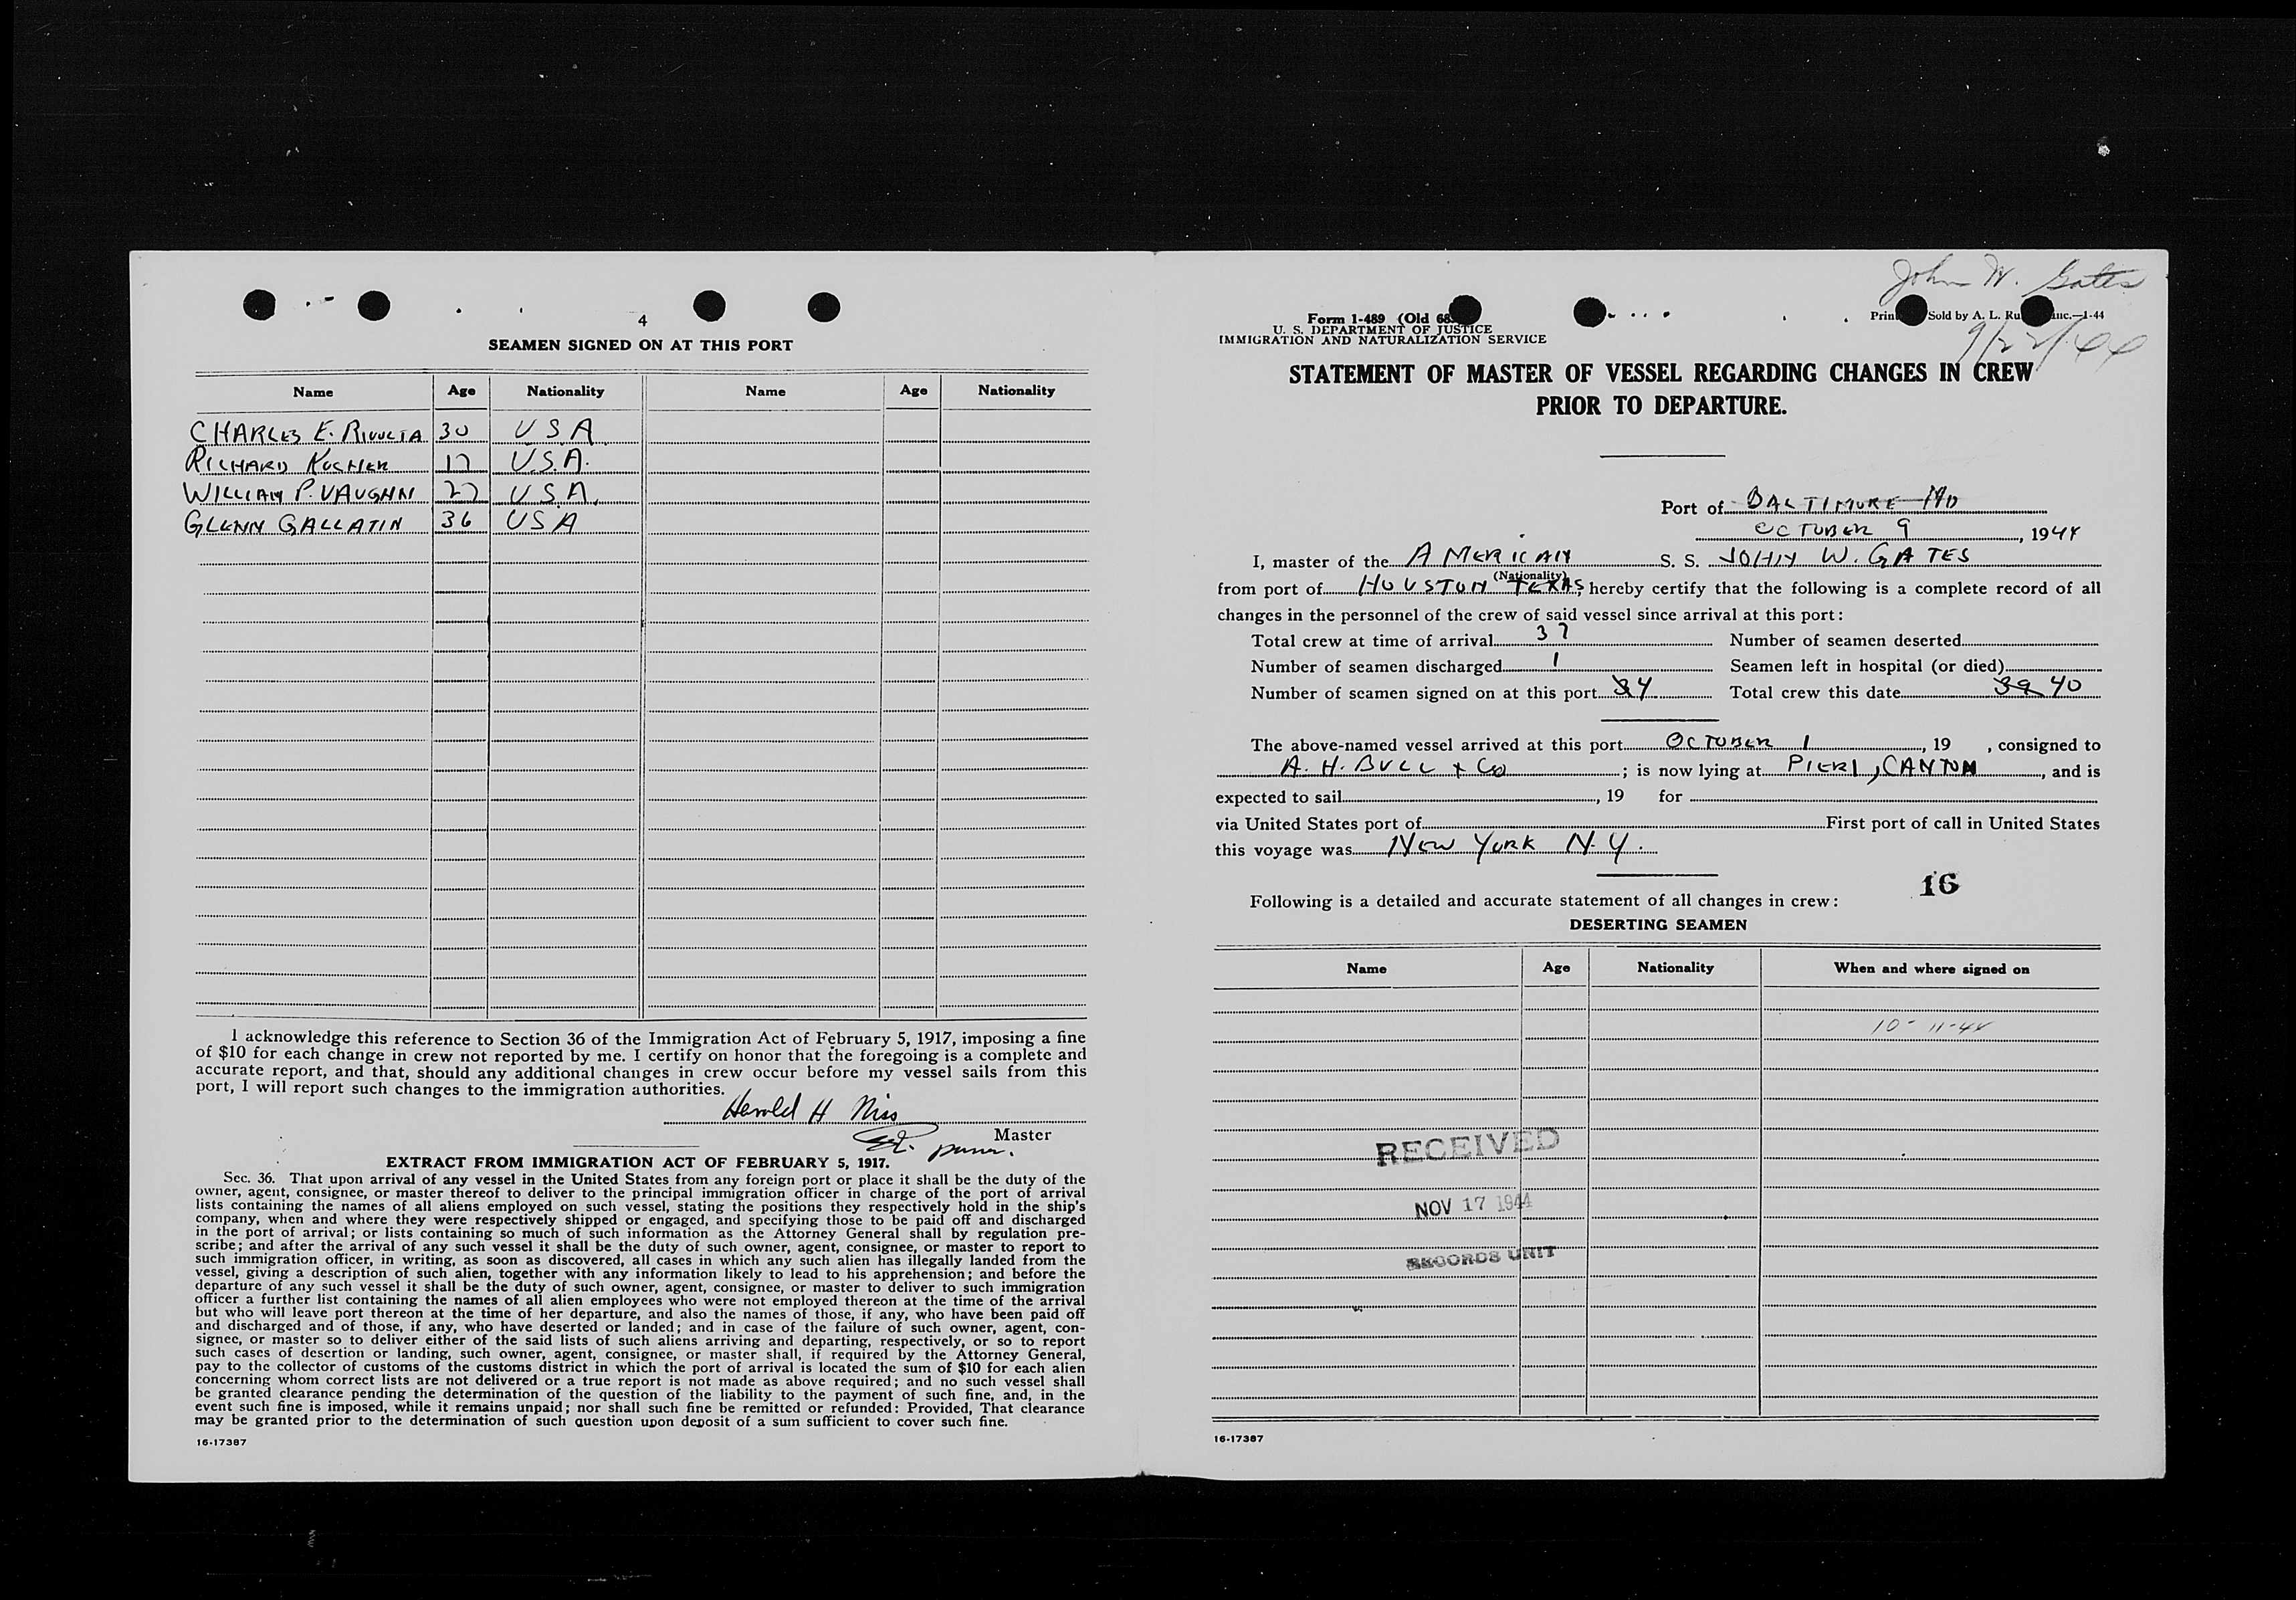 4
SEAMEN SIGNED ON AT THIS PORT
Name Age Nationality Name Age Nationality
CHARLES E. RIVULTA 30 USA
RICHARD KOCHER 17 U.S.A.
WILLIAM P. VAUGHN 27 USA.
GLENN GALLATIN 36 USA
I acknowledge this reference to Section 36 of the Immigration Act of February 5, 1917, imposing a fine
of $10 for each change in crew not reported by me. I certify on honor that the foregoing is a complete and
accurate report, and that, should any additional changes in crew occur before my vessel sails from this
port, I will report such changes to the immigration authorities.
Harold H
Master
EXTRACT FROM IMMIGRATION ACT OF FEBRUARY 5, 1917.
Sec. 36. That upon arrival of any vessel in the United States from any foreign port or place it shall be the duty of the
owner, agent, consignee, or master thereof to deliver to the principal immigration officer in charge of the port of arrival
lists containing the names of all aliens employed on such vessel, stating the positions they respectively hold in the ship's
company, when and where they were respectively shipped or engaged, and specifying those to be paid off and discharged
in the port of arrival; or lists containing so much of such information as the Attorney General shall by regulation pre-
scribe; and after the arrival of any such vessel it shall be the duty of such owner, agent, consignee, or master to report to
such immigration officer, in writing, as soon as discovered, all cases in which any such alien has illegally landed from the
vessel, giving a description of such alien, together with any information likely to lead to his apprehension; and before the
departure of any such vessel it shall be the duty of such owner, agent, consignee, or master to deliver to such immigration
officer a further list containing the names of all alien employees who were not employed thereon at the time of the arrival
but who will leave port thereon at the time of her departure, and also the names of those, if any, who have been paid off
and discharged and of those, if any, who have deserted or landed; and in case of the failure of such owner, agent, con-
signee, or master so to deliver either of the said lists of such aliens arriving and departing, respectively, or so to report
such cases of desertion or landing, such owner, agent, consignee, or master shall, if required by the Attorney General,
pay to the collector of customs of the customs district in which the port of arrival is located the sum of $10 for each alien
concerning whom correct lists are not delivered or a true report is not made as above required; and no such vessel shall
be granted clearance pending the determination of the question of the liability to the payment of such fine, and, in the
event such fine is imposed, while it remains unpaid; nor shall such fine be remitted or refunded: Provided, That clearance
may be granted prior to the determination of such question upon deposit of a sum sufficient to cover such fine.
16-17387
John W. Gates
Form I-489 (Old 68
U. S. DEPARTMENT OF JUSTICE
IMMIGRATION AND NATURALIZATION SERVICE
Sold by A. L. Inc.—1-44
9/22/44
STATEMENT OF MASTER OF VESSEL REGARDING CHANGES IN CREW
PRIOR TO DEPARTURE.
Port of BALTIMORE MD
OCTOBER 9, 1944
I, master of the AMERICAN S. S. JOHN W. GATES
(Nationality)
from port of HOUSTON TEXAS, hereby certify that the following is a complete record of all
changes in the personnel of the crew of said vessel since arrival at this port:
Total crew at time of arrival 37 Number of seamen deserted
Number of seamen discharged 1 Seamen left in hospital (or died)
Number of seamen signed on at this port 3 4 Total crew this date 39 40
The above-named vessel arrived at this port OCTOBER 1, 19 , consigned to
A. H. BULL + Co; is now lying at PIER 1, CANTON, and is
expected to sail, 19 for
via United States port of First port of call in United States
this voyage was NEW YORK N.Y.
16
Following is a detailed and accurate statement of all changes in crew:
DESERTING SEAMEN
Name Age Nationality When and where signed on
10-11-44
RECEIVED
NOV 17 1944
RECORDS UNIT
16-17387